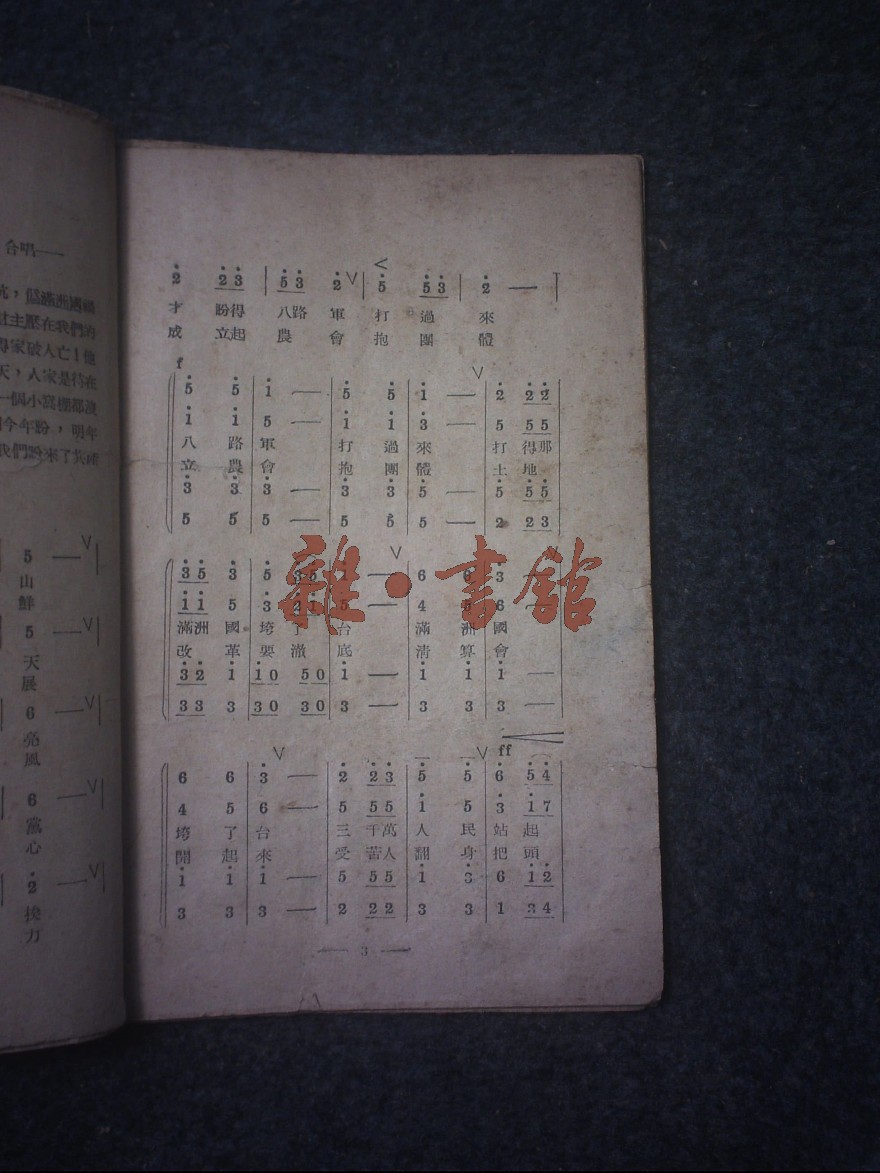 合唱——
偽滿洲國
財主壓在我們的
得家破人亡！他
天，人家是待在
一個小窩棚都沒
今年盼，明年
我們盼來了共
5 —
山
鮮
5 —
天
展
6 —
亮
風
6 —
黨
心
2 —
挨
力
2 23 | 53 2 | 5 53 | 2 — |
才 盼得 八路 軍 打 過 來
成 立起 農 會 抱 團 體
f
5 5 | 1 — | 5 5 | 1 — | 2 22
1 1 | 5 — | 1 1 | 3 — | 5 55
八 路 軍 打 過 來 打 得那
立 農 會 抱 團 體 土 地
3 3 | 3 — | 3 3 | 5 — | 5 55
5 5 | 5 — | 5 5 | 5 — | 2 23
雜·書館
35 3 | 5 35 | 1 — | 6 6 | 3 —
11 5 | 3 21 | 5 — | 4 5 | 6 —
滿洲 國 垮 了 台 滿 洲 國
改 革 要 澈 底 清 算 會
32 1 | 10 50 | 1 — | 1 1 | 1 —
33 3 | 30 30 | 3 — | 3 3 | 3 —
ff
6 6 | 3 — | 2 23 | 5 5 | 6 54
4 5 | 6 — | 5 55 | 1 5 | 3 17
垮 了 台 三 千萬 人 民 站 起
開 起 來 受 苦人 翻 身 把 頭
1 1 | 1 — | 5 55 | 1 3 | 6 12
3 3 | 3 — | 2 22 | 3 3 | 1 34
— 3 —